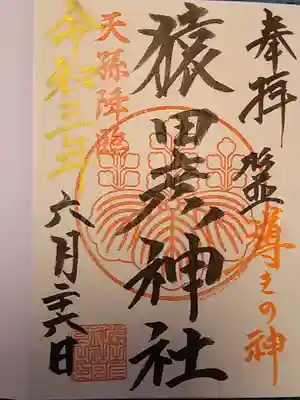 奉拝
導きの神
猿田彦神社
天孫降臨
令和三年
六月二六日